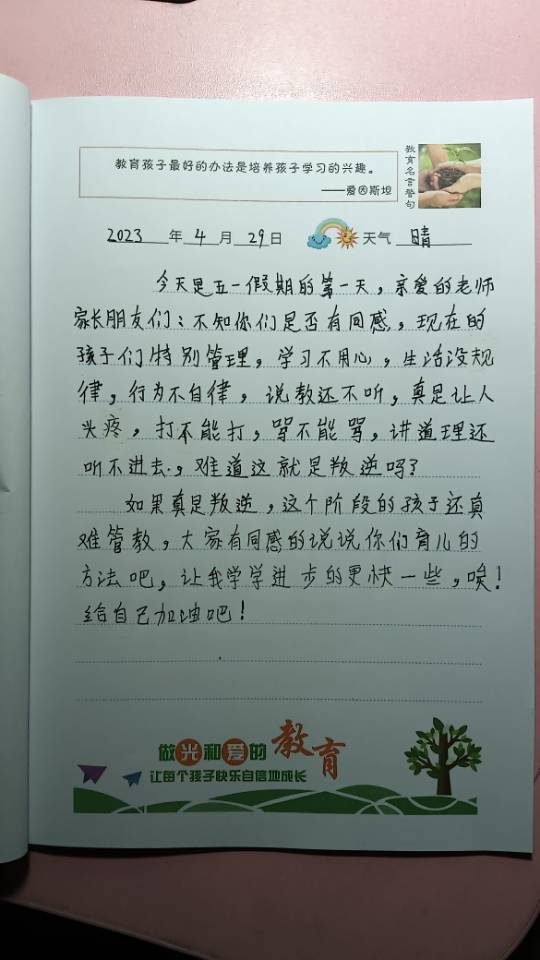 教育孩子最好的办法是培养孩子学习的兴趣。
——爱因斯坦
教育名言警句
2023 年 4 月 29 日 天气 晴
今天是五一假期的第一天，亲爱的老师
家长朋友们：不知你们是否有同感，现在的
孩子们特别管理，学习不用心，生活没规
律，行为不自律，说教还不听，真是让人
头疼，打不能打，骂不能骂，讲道理还
听不进去，难道这就是叛逆吗？
如果真是叛逆，这个阶段的孩子还真
难管教，大家有同感的说说你们育儿的
方法吧，让我学学进步的更快一些，唉！
给自己加油吧！
做光和爱的教育
让每个孩子快乐自信地成长